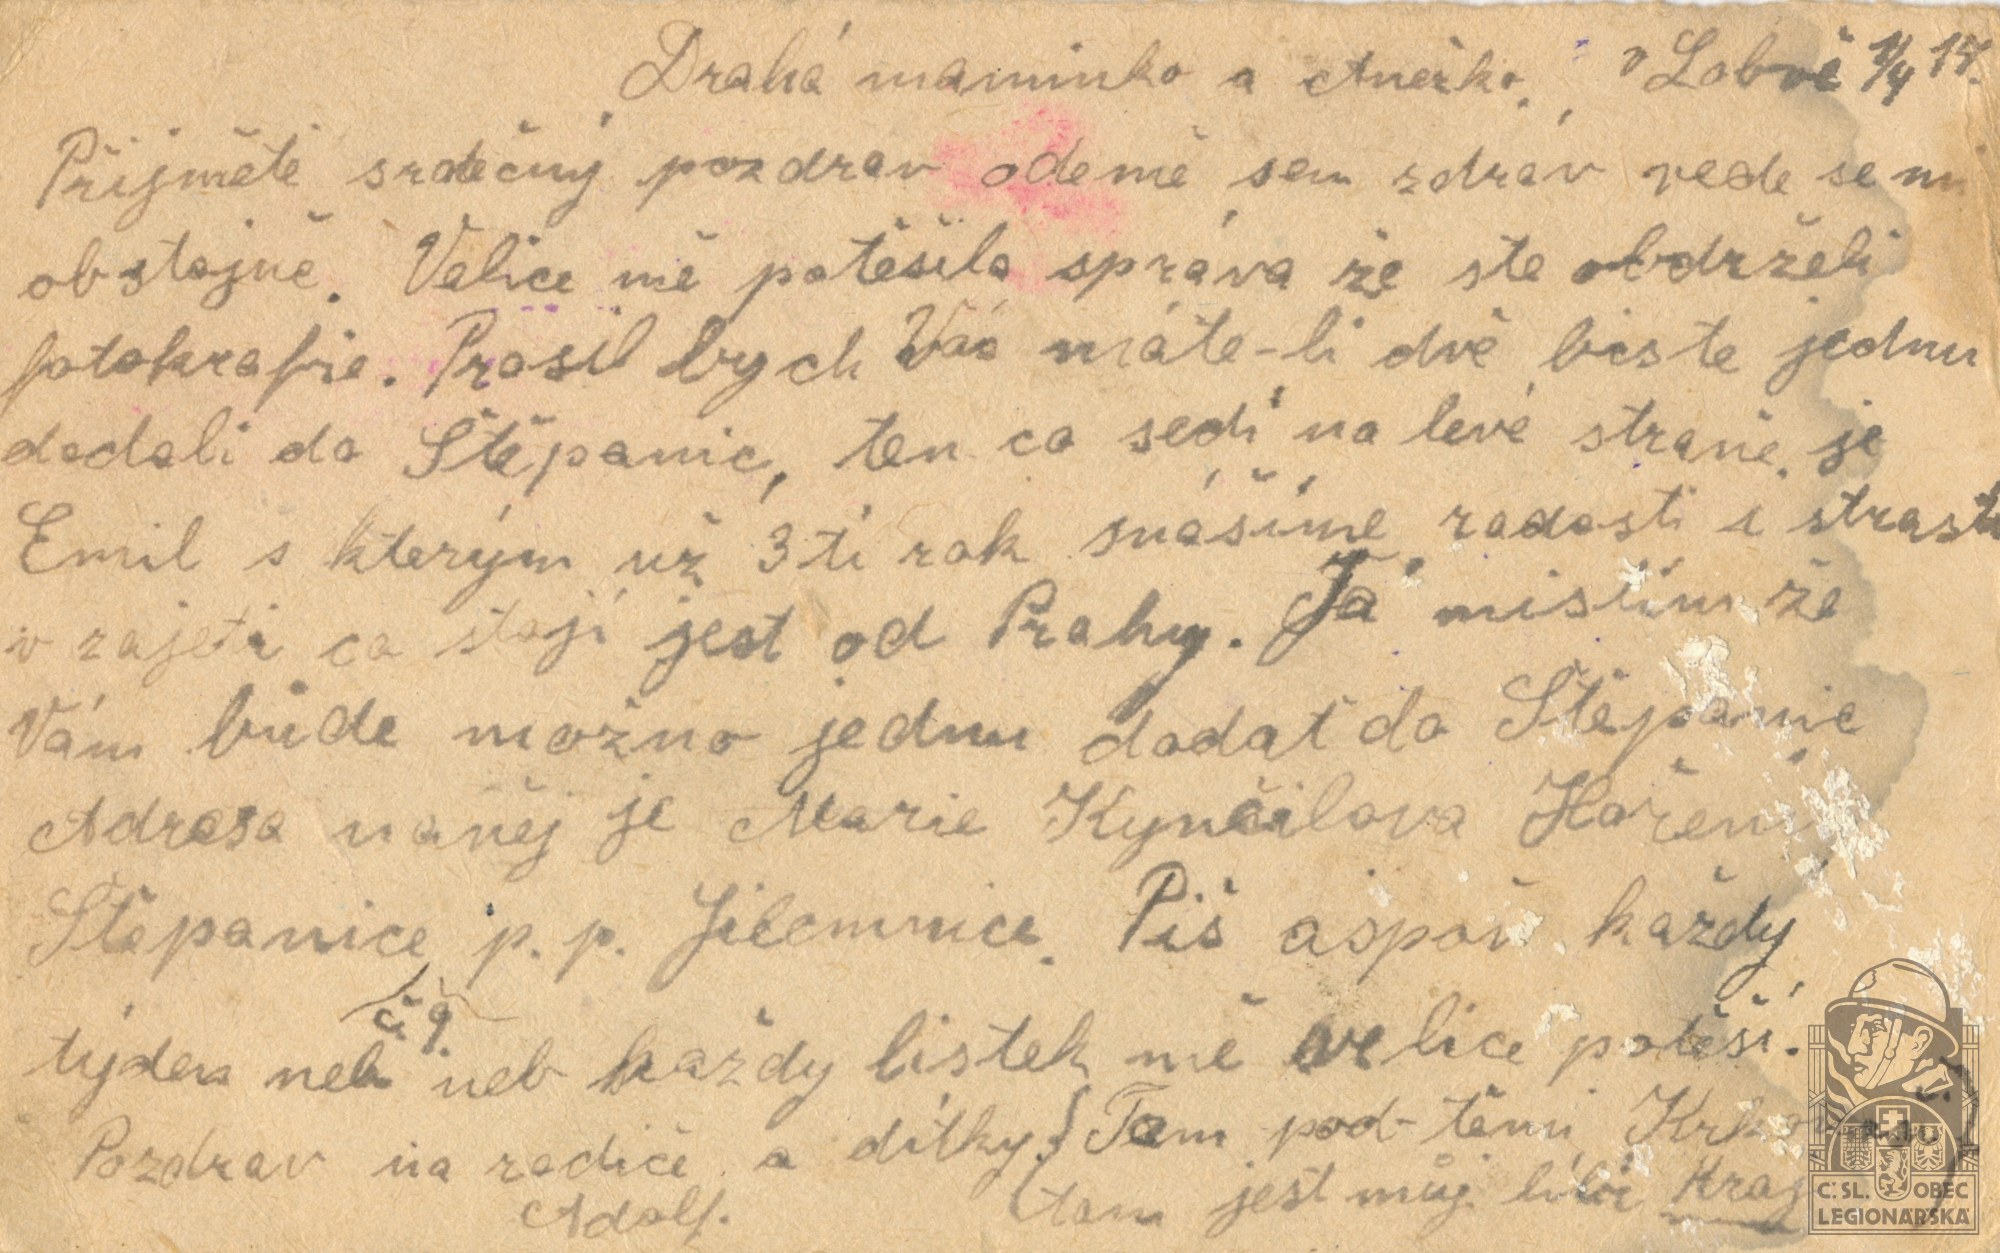 Drahá maminko a Anežko. v Lobvě 1/4 17.
Přijměte srdečný pozdrav odemě sem zdráv vede se mi
obstojně. Velice mě potěšila správa že ste obdrželi
fotokrafie. Prosil bych Vás máte-li dvě biste jednu
dodali do Štěpanic, ten co sedí na levé straně je
Emil s kterým už 3tí rok snášíme radosti i strasti
v zajetí co stojí jest od Prahy. Já mislím že
Vám bude možno jednu dodat do Štěpanic
Adresa naněj je Marie Kynčilova Hoření
Štěpanice p. p. Jilemnice. Piš aspoň každy
č. 9.
týden neb neb každy listek mě velice potěší.
Pozdrav na rodiče a dítky. Tam pod-těmi
Adolf. tam jest můj líbí Kraj
C.SL. OBEC
LEGIONÁŘSKÁ